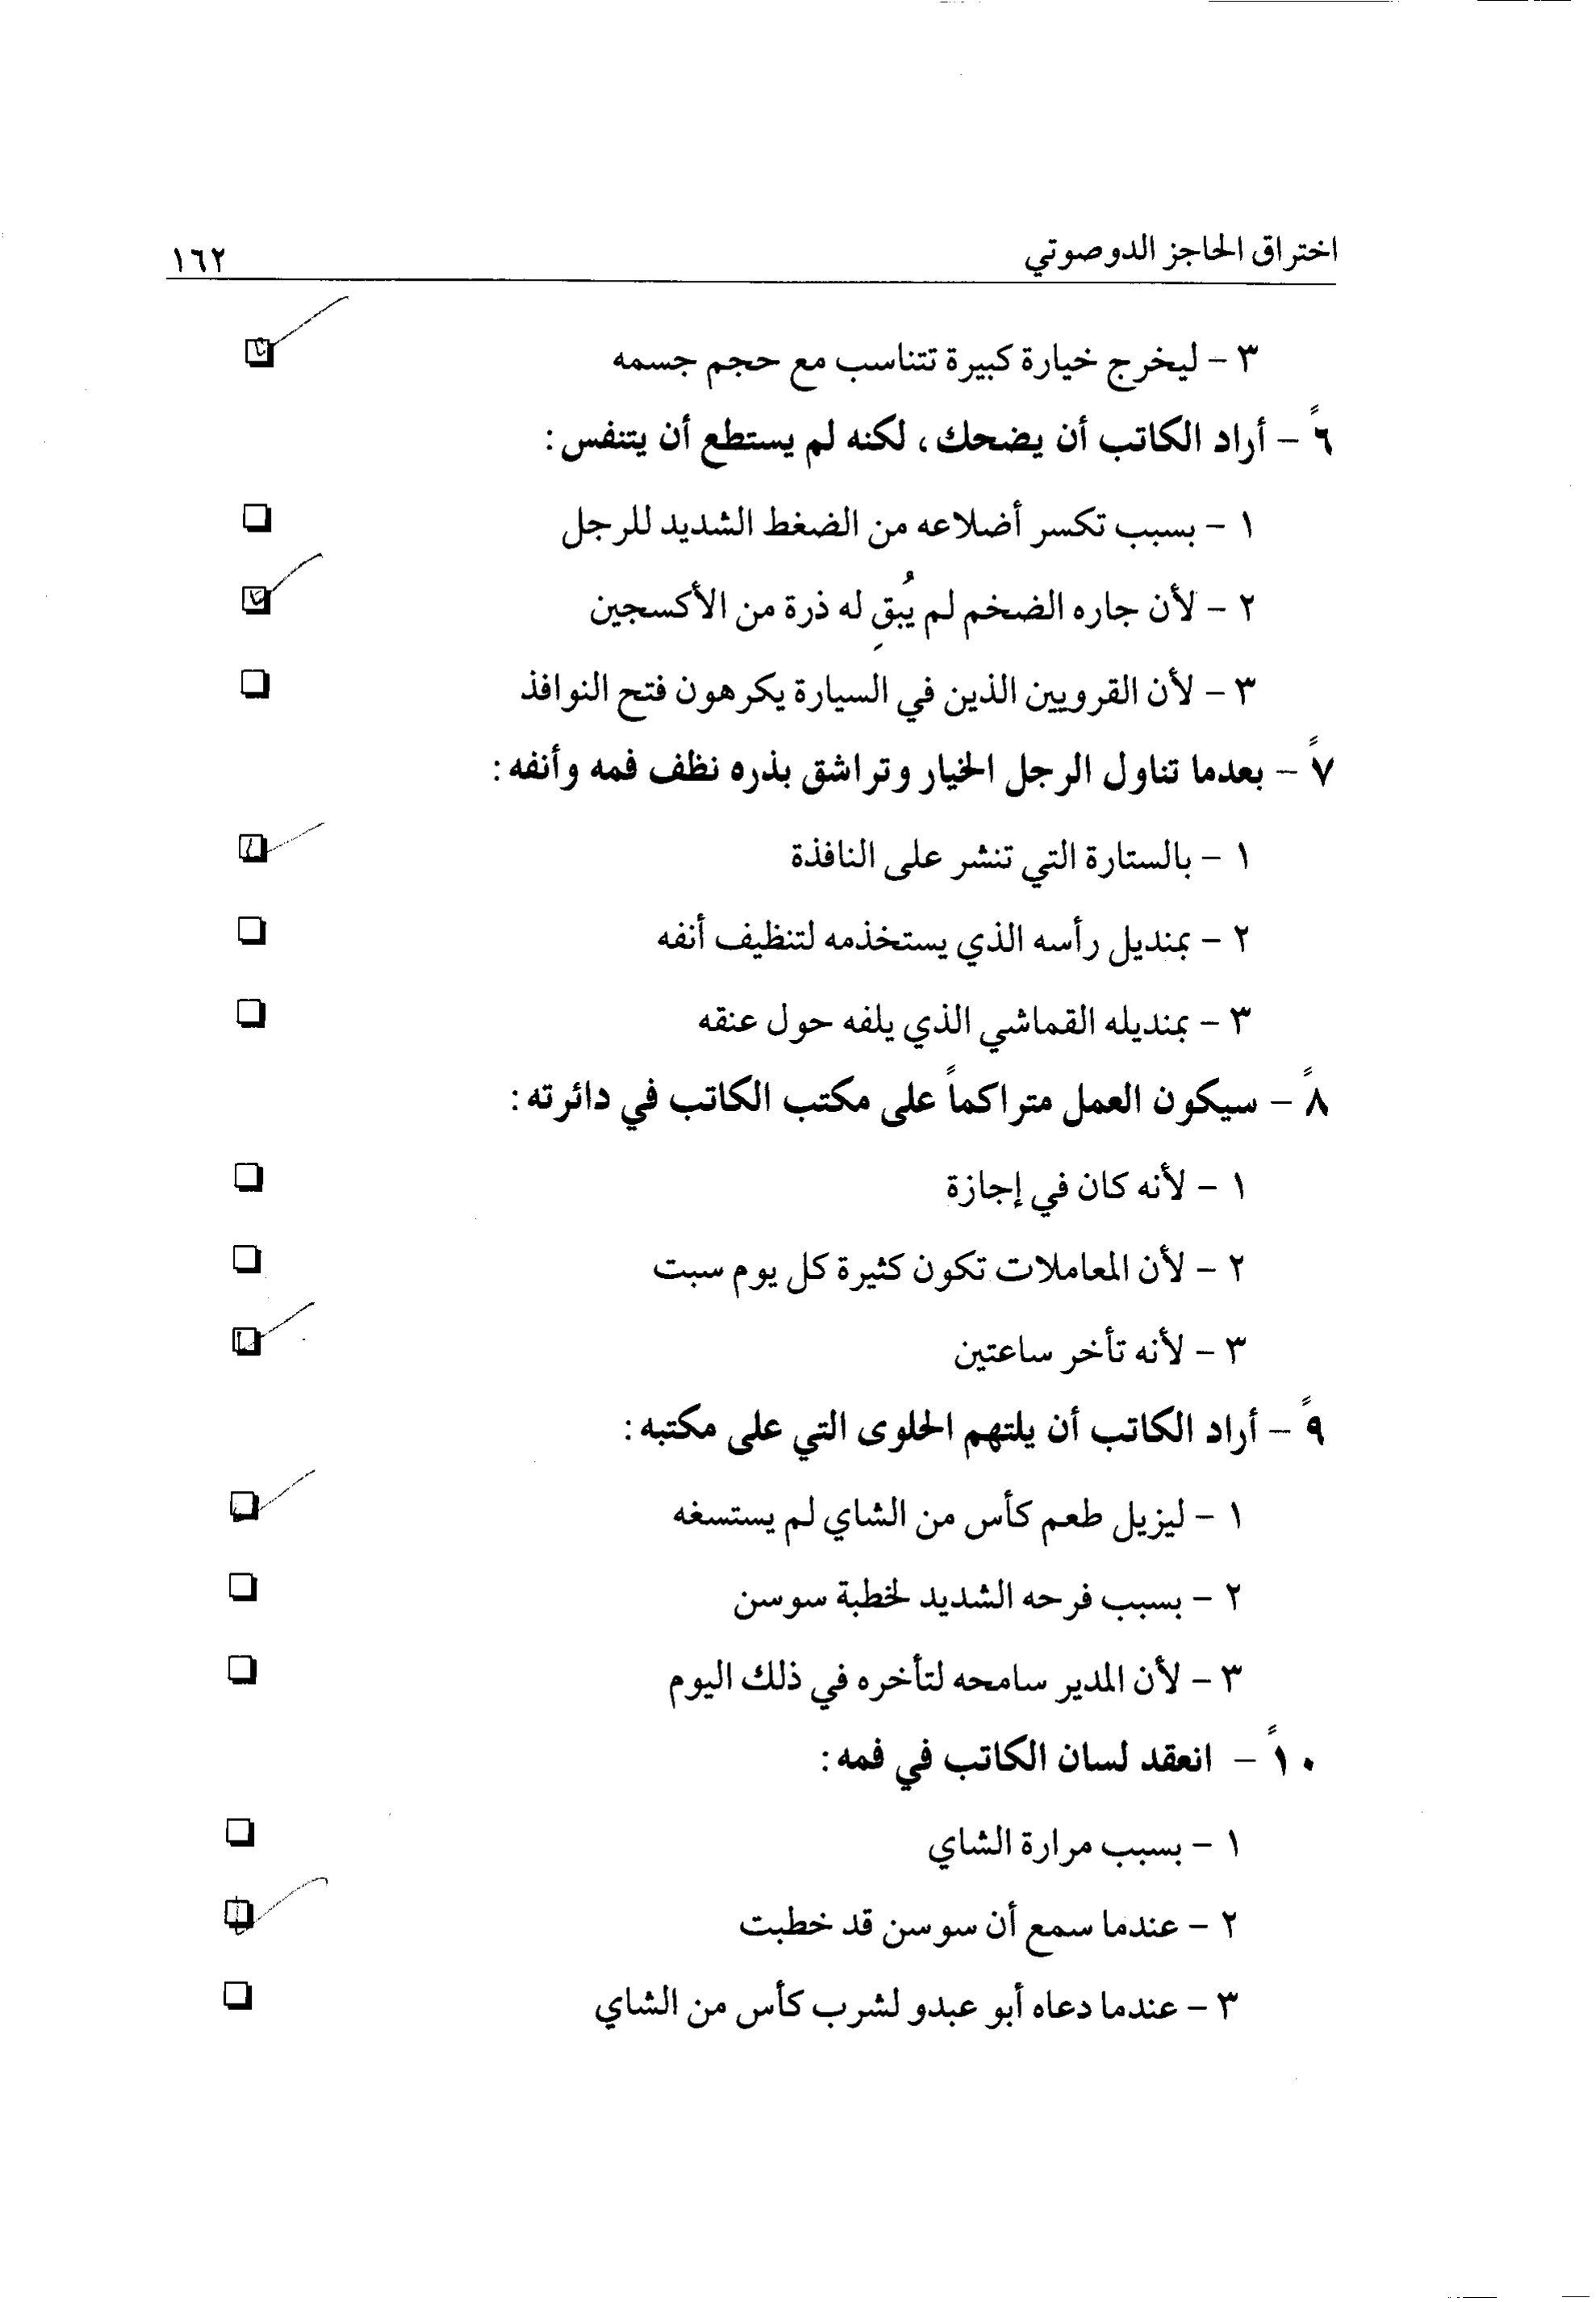 اختراق الحاجز الدوصوتي ١٦٢
٣ - ليخرج خيارة كبيرة تتناسب مع حجم جسمه
٦ً - أراد الكاتب أن يضحك، لكنه لم يستطع أن يتنفس:
١ - بسبب تكسر أضلاعه من الضغط الشديد للرجل
٢ - لأن جاره الضخم لم يُبقِ له ذرة من الأكسجين
٣ - لأن القرويين الذين في السيارة يكرهون فتح النوافذ
٧ً - بعدما تناول الرجل الخيار وتراشق بذره نظف فمه وأنفه:
١ - بالستارة التي تنشر على النافذة
٢ - بمنديل رأسه الذي يستخذمه لتنظيف أنفه
٣ - بمنديله القماشي الذي يلفه حول عنقه
٨ً - سيكون العمل متراكماً على مكتب الكاتب في دائرته:
١ - لأنه كان في إجازة
٢ - لأن المعاملات تكون كثيرة كل يوم سبت
٣ - لأنه تأخر ساعتين
٩ً - أراد الكاتب أن يلتهم الحلوى التي على مكتبه:
١ - ليزيل طعم كأس من الشاي لم يستسغه
٢ - بسبب فرحه الشديد لخطبة سوسن
٣ - لأن المدير سامحه لتأخره في ذلك اليوم
١٠ً - انعقد لسان الكاتب في فمه:
١ - بسبب مرارة الشاي
٢ - عندما سمع أن سوسن قد خطبت
٣ - عندما دعاه أبو عبدو لشرب كأس من الشاي